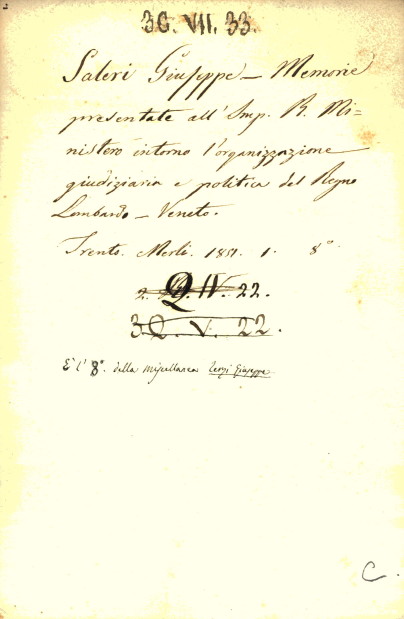 3C. VII. 33.
Saleri Giuseppe – Memorie
presentate all'Imp. R. Mi=
nistero intorno l'organizzazione
giudiziaria e politica del Regno
Lombardo – Veneto.
Trento. Merli. 1851. 1. 8°.
Q. IV. 22.
3Q. V. 22.
È l' 8°. della Miscellanea Giuseppe
C.